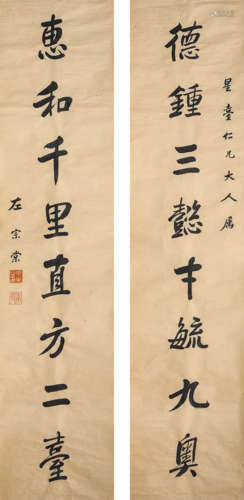 德鍾三懿才毓九奧
星臺仁兄大人属
惠和千里直方二臺
左宗棠